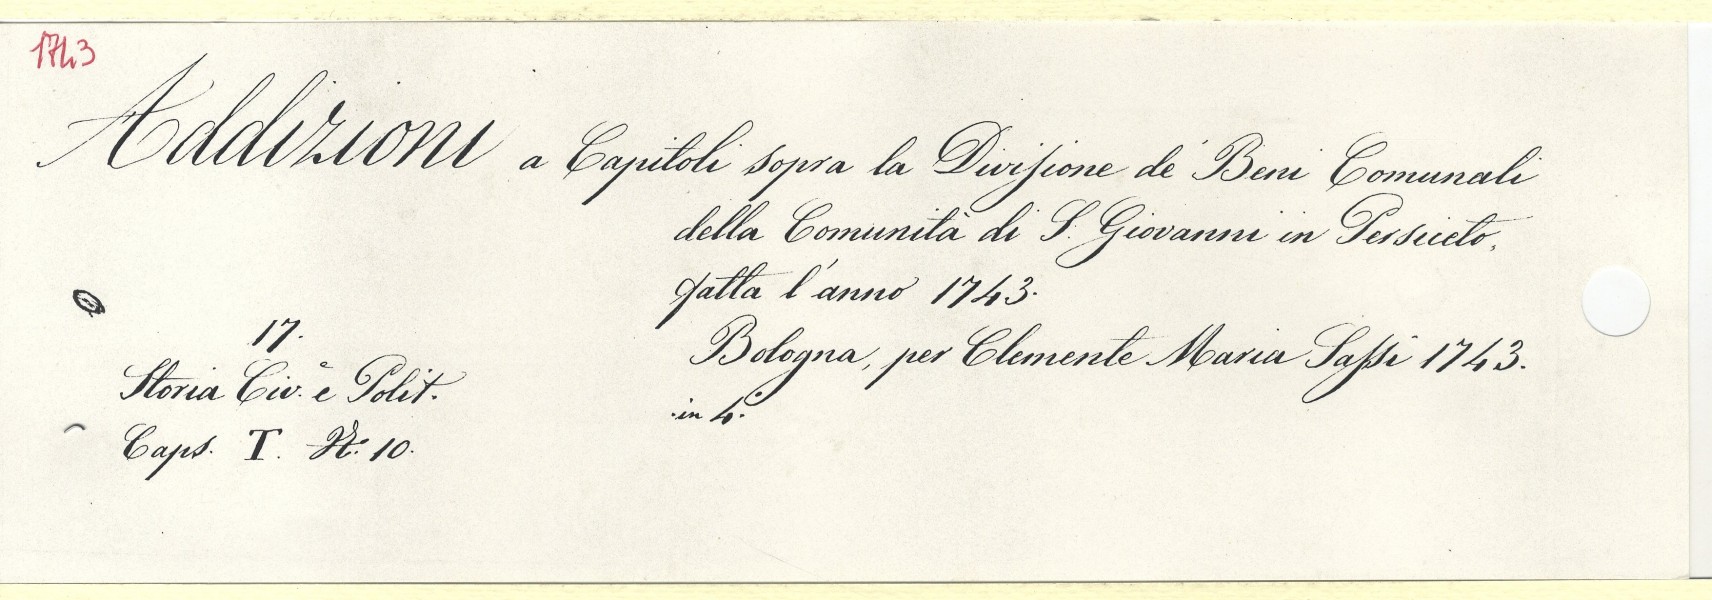 1743
Addizioni a Capitoli sopra la Divisione de' Beni Comunali
della Comunità di S. Giovanni in Persiceto,
fatta l'anno 1743.
Bologna, per Clemente Maria Sassi 1743.
in 4.º
17.
Storia Civ. e Polit.
Caps. T. N. 10.